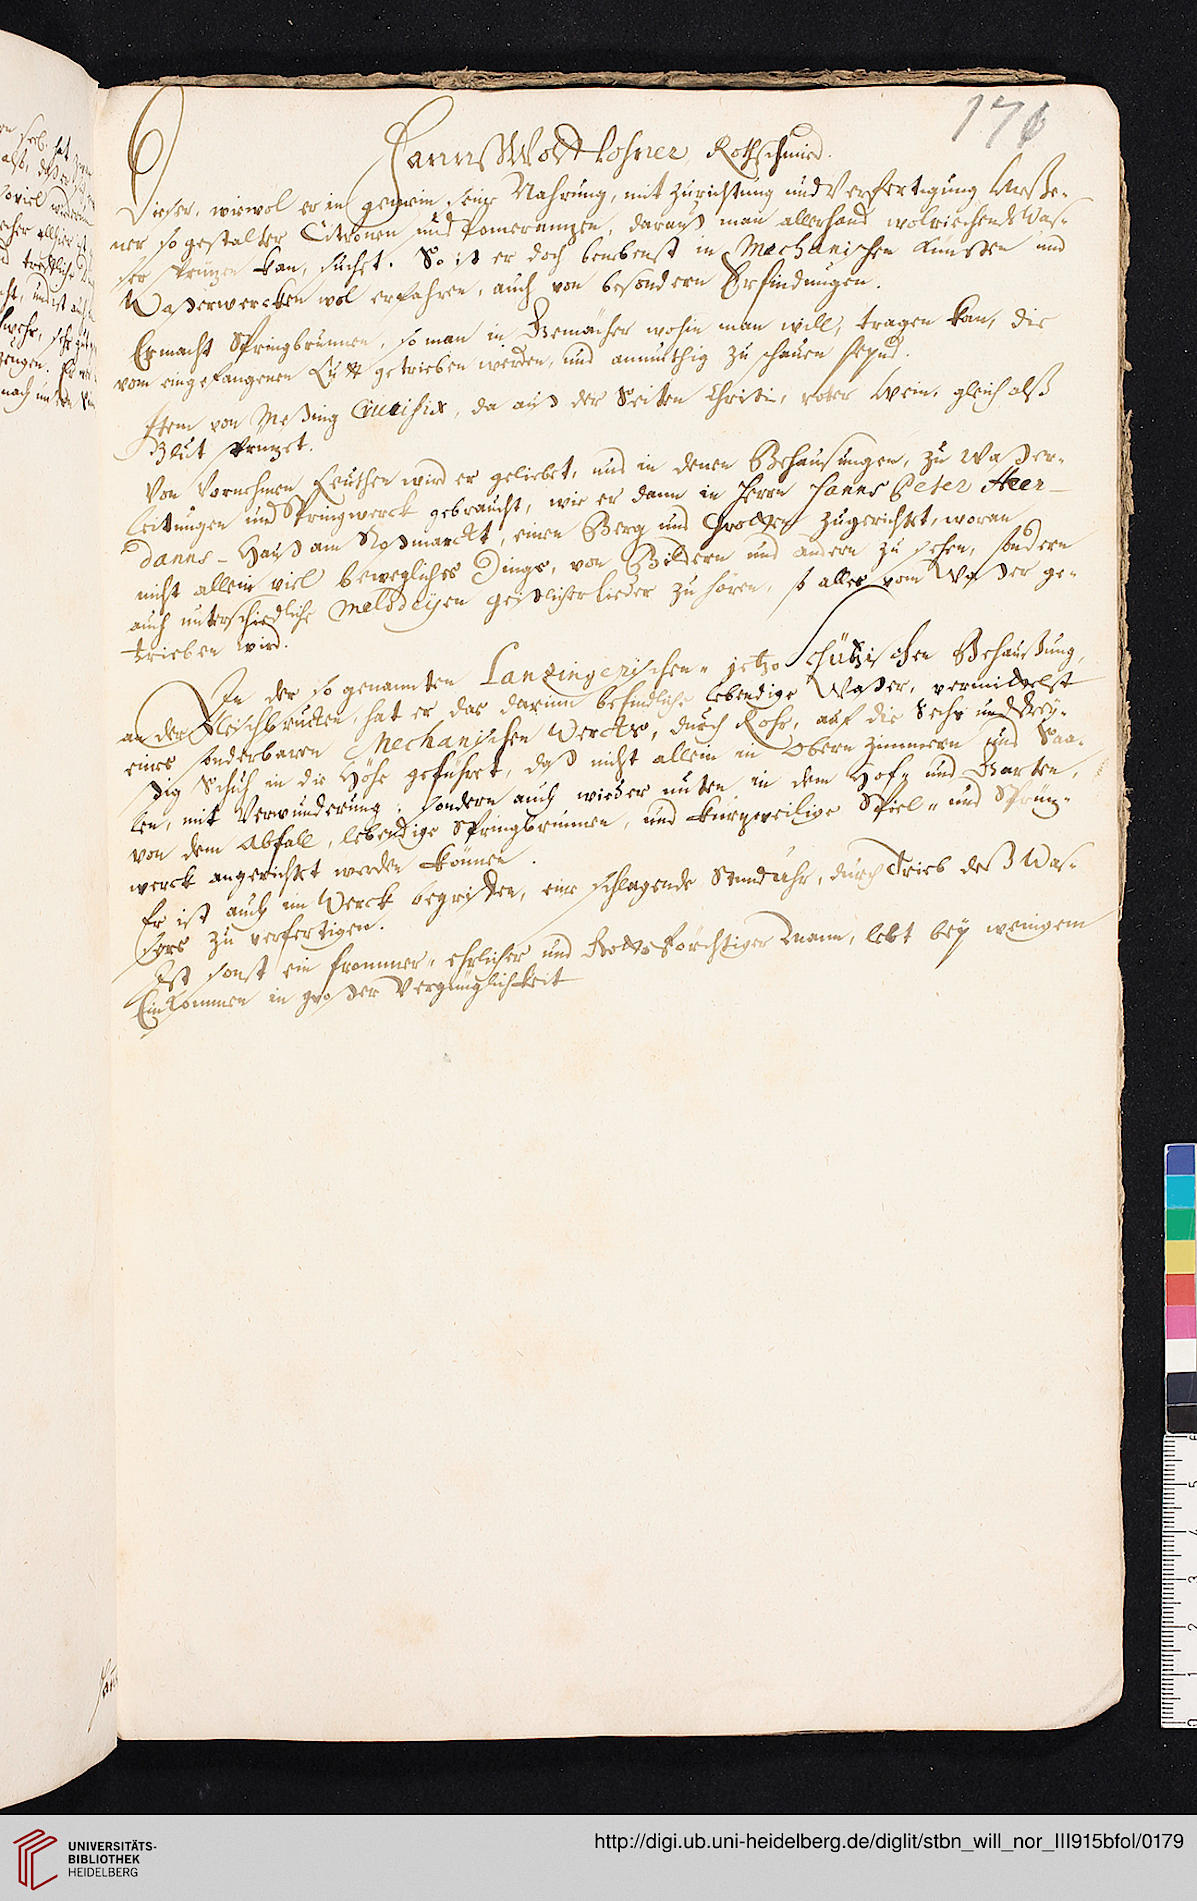 176
Hannß Wolff Lohner, Rothschmied.
Dieser, wiewol er in gemein seine Nahrung, mit Zurichtung und Verfertigung Meße-
ner so gestalter Citronen und Pomeranzen, darauß man allerhand wolriechende Was-
ser sprützen kan, suchet. So ist er doch benebenst in Mechanischen Künsten und
Waßerwercken wol erfahren, auch von besondern Erfindungen.
Er macht Springbrunnen, so man in Gemächer wohin man will, tragen kan, die
vom eingefangenen Lufft getrieben werden, und anmuthig zu schauen seynd.
Item von Meßing Crucifix, da auß der Seiten Christi, roter Wein, gleich alß
Blut sprützet.
Von Vornehmen Leuthen wird er geliebet, und in denen Behausungen, zu Waßer-
leitungen und Springwerck gebraucht, wie er dann in Herrn Hanns Peter Heer-
danns- Hauß am Roßmarckt, einen Berg und Grotten zugerichtet, woran
nicht allein viel bewegliches Dings, von Bildern und andern zu sehen, sondern
auch unterschiedliche Melodeyen geistlicher Lieder zu hören, so alles vom Waßer ge-
trieben wird.
In der so genannten Lanzingerischen- jetzo Schützischen Behaußung,
an der Fleischbrucken, hat er das darinn befindliche lebendige Waßer, vermittelst
eines sonderbaren Mechanischen Wercks, durch Rohr, auf die Sechs und drey-
ßig Schuh in die Höhe geführet, daß nicht allein in Obern Zimmern und Saa-
len, mit Verwunderung, sondern auch wieder unten in dem Hof- und Garten,
von dem Abfall, lebendige Springbrunnen, und kurzweilige Spiel- und Sprütz-
werck angerichtet werden können.
Er ist auch im Werck begriffen, eine schlagende Stunduhr, durch Trieb deß Was-
sers zu verfertigen.
Ist sonst ein frommer, ehrlicher und Gottsförchtiger Mann, lebt bey wenigem
Einkommen in großer Vergnüglichkeit
UNIVERSITÄTS-
BIBLIOTHEK
HEIDELBERG
http://digi.ub.uni-heidelberg.de/diglit/stbn_will_nor_III915bfol/0179